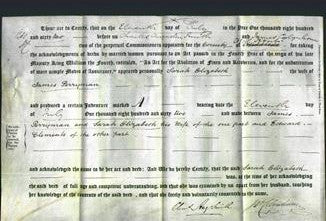 These are to Certify, that on the Eleventh day of July in the Year One thousand eight hundred
and sixty two before us
two of the perpetual Commissioners appointed for the County of Middlesex for taking the
acknowledgments of deeds by married women, pursuant to an Act passed in the Reign of his late
Majesty King William the Fourth, entitled, "An Act for the Abolition of Fines and Recoveries, and for the substitution
of more simple Modes of Assurance," appeared personally Sarah Elizabeth the wife of
James Berryman
and produced a certain Indenture marked A bearing date the Eleventh
day of July one thousand eight hundred and sixty two and made between James
Berryman and Sarah Elizabeth his Wife of the one part and Edward
Clements of the other part
and acknowledged the same to be her act and deed: And We do hereby Certify that the said Sarah Elizabeth
was, at the time of her acknowledging
the said deed of full age and competent understanding, and that she was examined by us apart from her husband, touching
her knowledge of the contents of the said deed and that she freely and voluntarily consented to the same